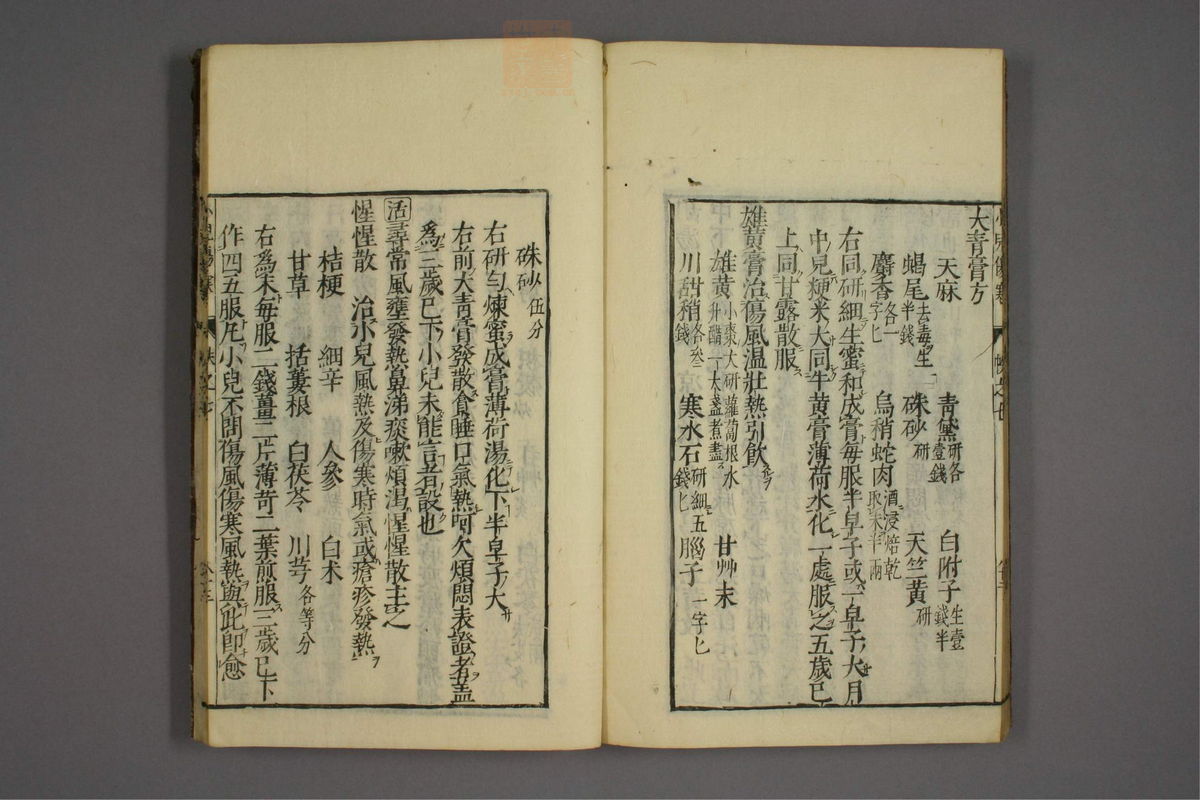 大青膏方
天麻　青黛研各壹錢　白附子生壹錢半
蝎尾去毒生半錢　硃砂研　天竺黃研
麝香各一字匕　烏稍蛇肉酒浸焙乾取末半兩
右同研細生蜜和成膏每服半皁子或一皁子大月
中兒粳米大同牛黄膏薄荷水化一處服之五歲已
上同甘露散服
雄黄膏治傷風温壯熱引飲
雄黄小棗大研蘿蔔根水并醋一大盞煮盡　甘艸末
川甜稍各叁錢　寒水石研細五錢匕　腦子一字匕
硃砂伍分
右研勻煉蜜成膏薄荷湯化下半皁子大
右前大青膏發散貪睡口氣熱呵欠煩悶表證者盖
為三歲已下小兒未能言者設也
活尋常風壅發熱鼻涕痰嗽煩渴惺惺散主之
惺惺散　治小兒風熱及傷寒時氣或瘡疹發熱
桔梗　細辛　人參　白术
甘草　括蔞根　白茯苓　川芎各等分
右為末每服二錢薑二片薄苛二葉煎服三歲已下
作四五服凡小兒不問傷風傷寒風熱與此即愈